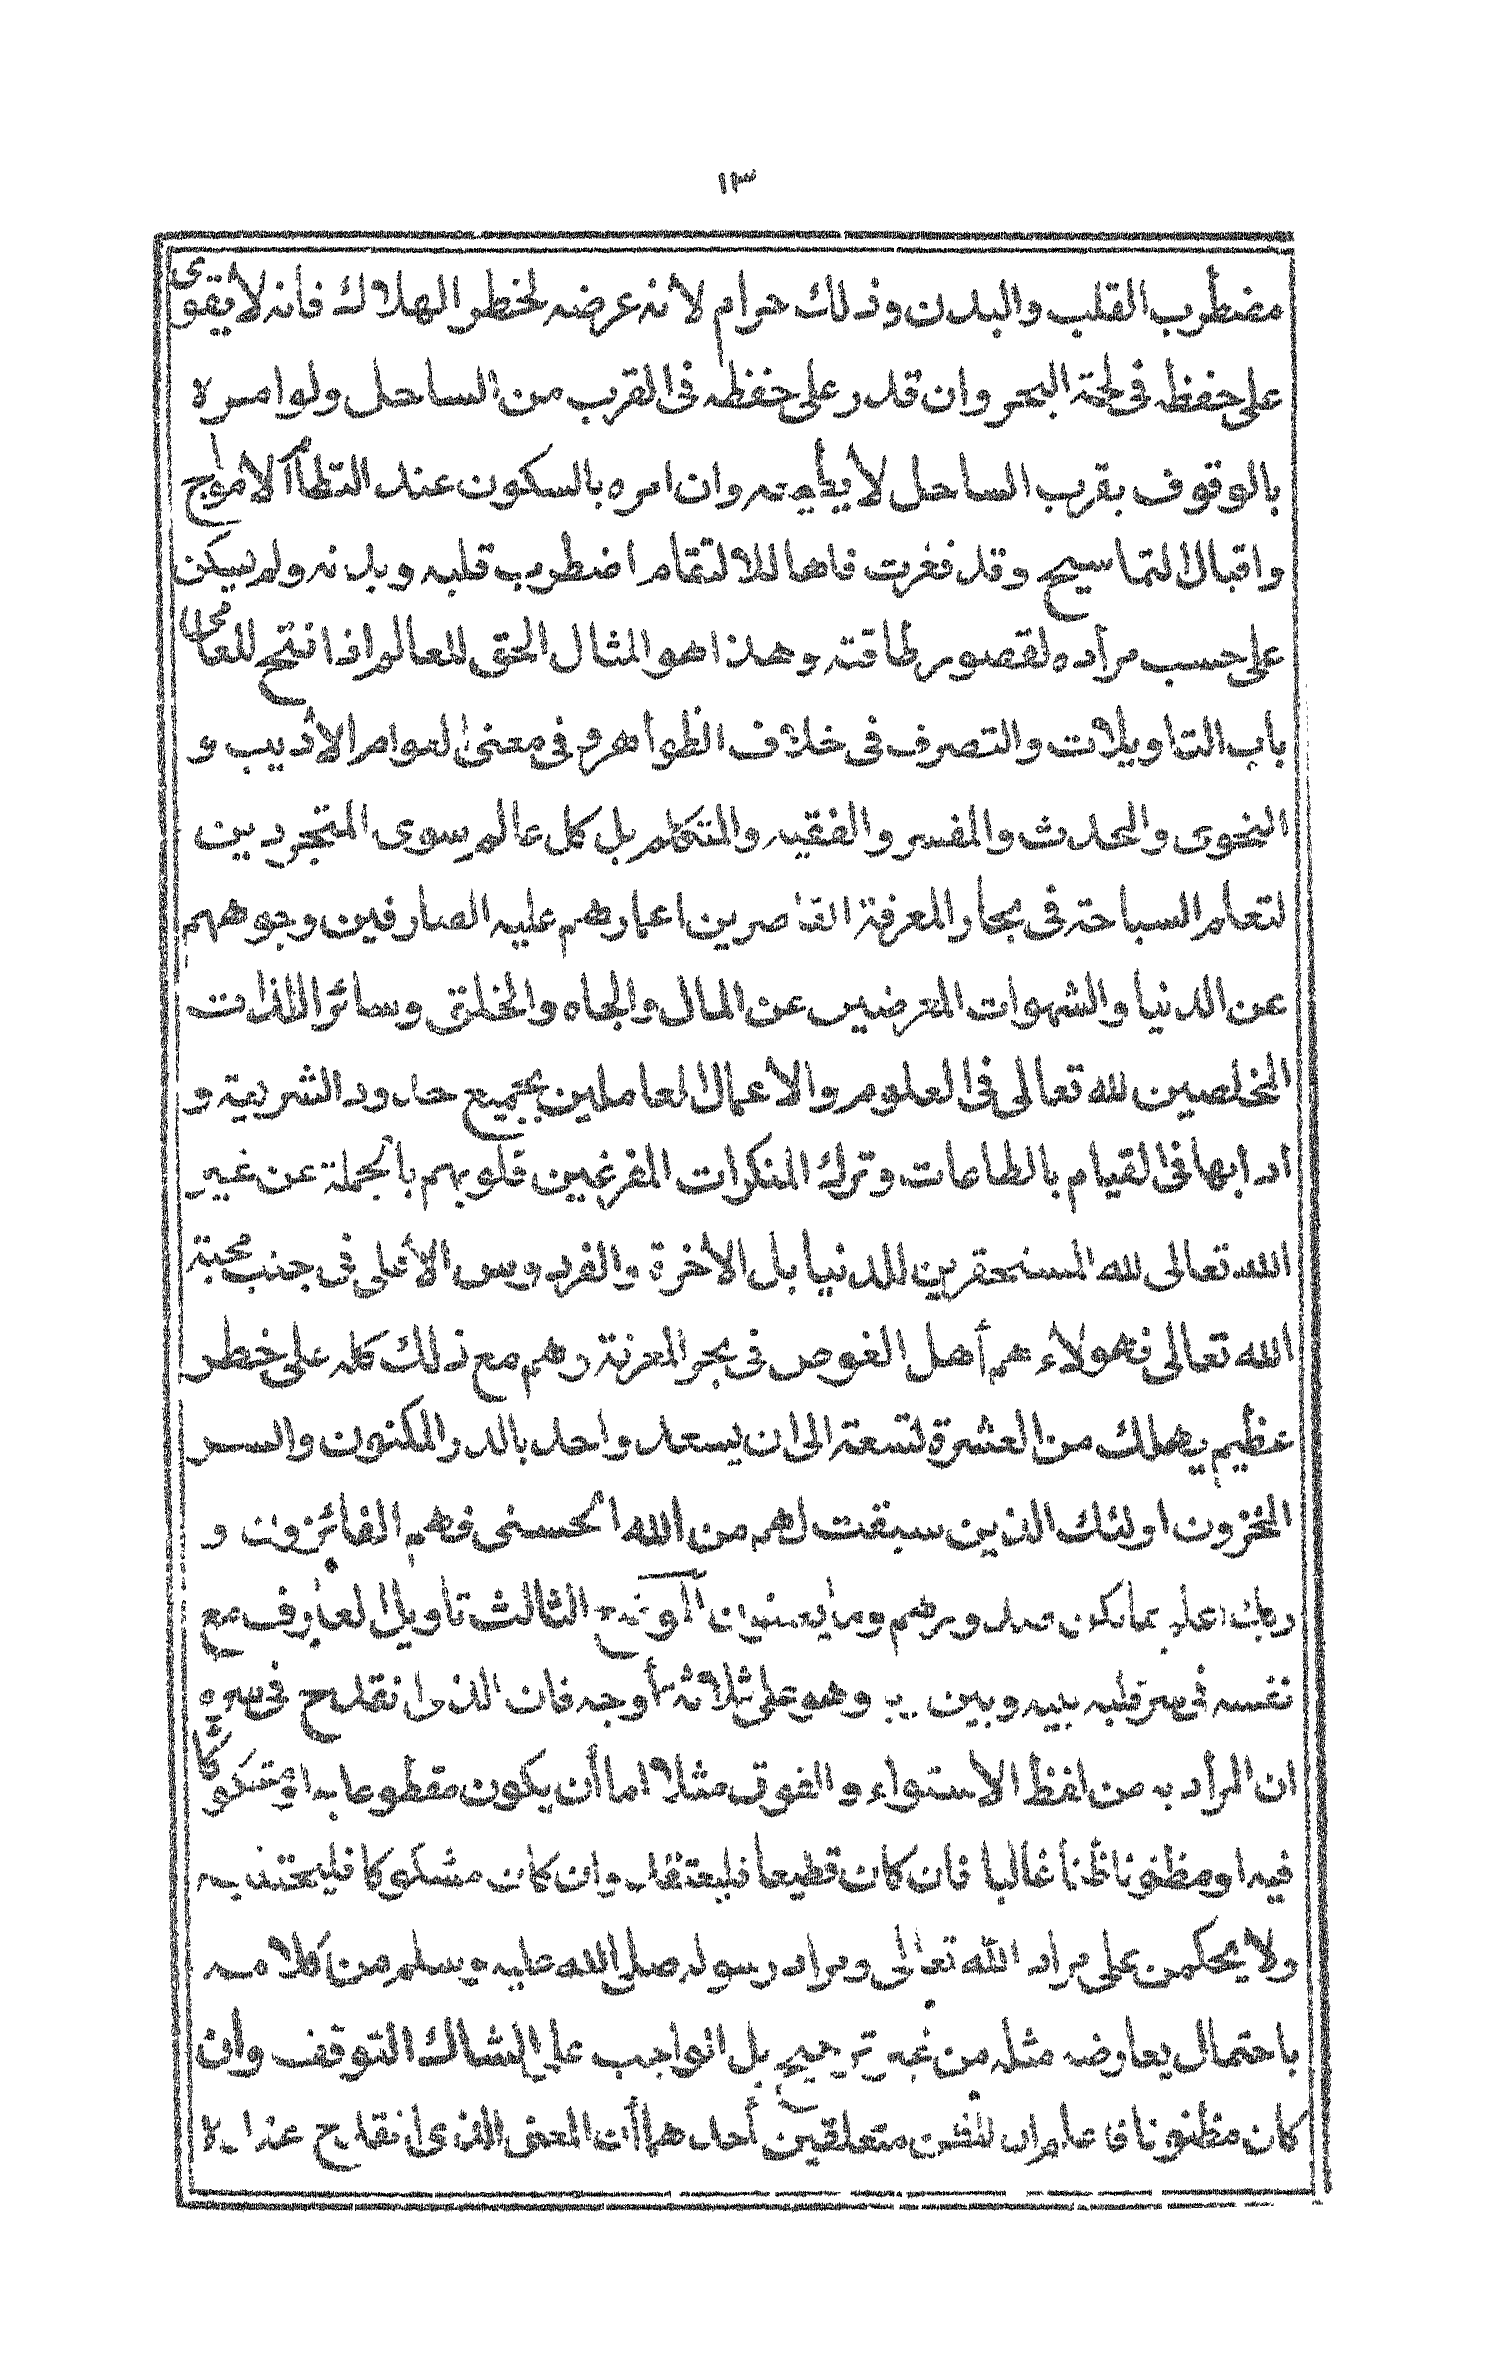 ١٣
مضطرب القلب والبدن وذلك حرام لانه عرضه لخطر الهلاك فانه لا يقوى
على حفظه فى لجة البحر وان قدر على حفظه فى القرب من الساحل ولو امره
بالوقوف بقرب الساحل لا يطيعه وان امره بالسكون عند التطام الامواج
واقبال التماسيح وقد فغرت فاها للالتقام اضطرب قلبه وبدنه ولم يسكن
على حسب مراده لقصور طاقته وهذا هو المثال الحق للعالم اذا فتح للعامى
باب التاويلات والتصرف فى خلاف الظواهر و فى معنى العوام الاديب و
النحوى والمحدث والمفسر والفقيه والمتكلم بل كل عالم سوى المتجردين
لتعلم السباحة فى بحار المعرفة القاصرين اعمارهم عليه الصارفين وجوههم
عن الدنيا والشهوات المعرضين عن المال والجاه والخلق وسائر اللذات
المخلصين لله تعالى فى العلوم والاعمال العاملين بجميع حدود الشريعة و
ادابها فى القيام بالطاعات وترك المنكرات المفرغين قلوبهم بالجملة عن غير
الله تعالى لله المستحقرين للدنيا بل الاخرة والفردوس الأعلى فى جنب محبة
الله تعالى فهولاء هم أهل الغوص فى بحر المعرفة وهم مع ذلك كله على خطر
عظيم يهلك من العشرة لتسعة الى ان يسعد واحد بالدر المكنون والسر
المخزون اولئك الذين سبقت لهم من الله الحسنى فهم الفائزون و
ربك اعلم بما تكن صدورهم وما يعلنون الموضع الثالث تاويل العارف مع
نفسه فى سر قلبه بينه وبين ربه وهو على ثلاثة أوجه فان الذى انقدح فى سره
ان المراد به من لفظ الاستواء والفوق مثلا اما أن يكون مقطوعا به او مشكوكا
فيه او مظنونا ظنا غالبا فان كان قطيعا فليعتقده وان كان مشكوكا فليجتنبه
ولا يحكمن على مراد الله تعالى ومراد رسوله صلى الله عليه وسلم من كلامه
باحتمال يعارضه مثله من غير ترجيح بل الواجب على الشاك التوقف وان
كان مظنونا فاعلم ان للظن متعلقين أحدهما ان المعنى الذى انقدح عنده